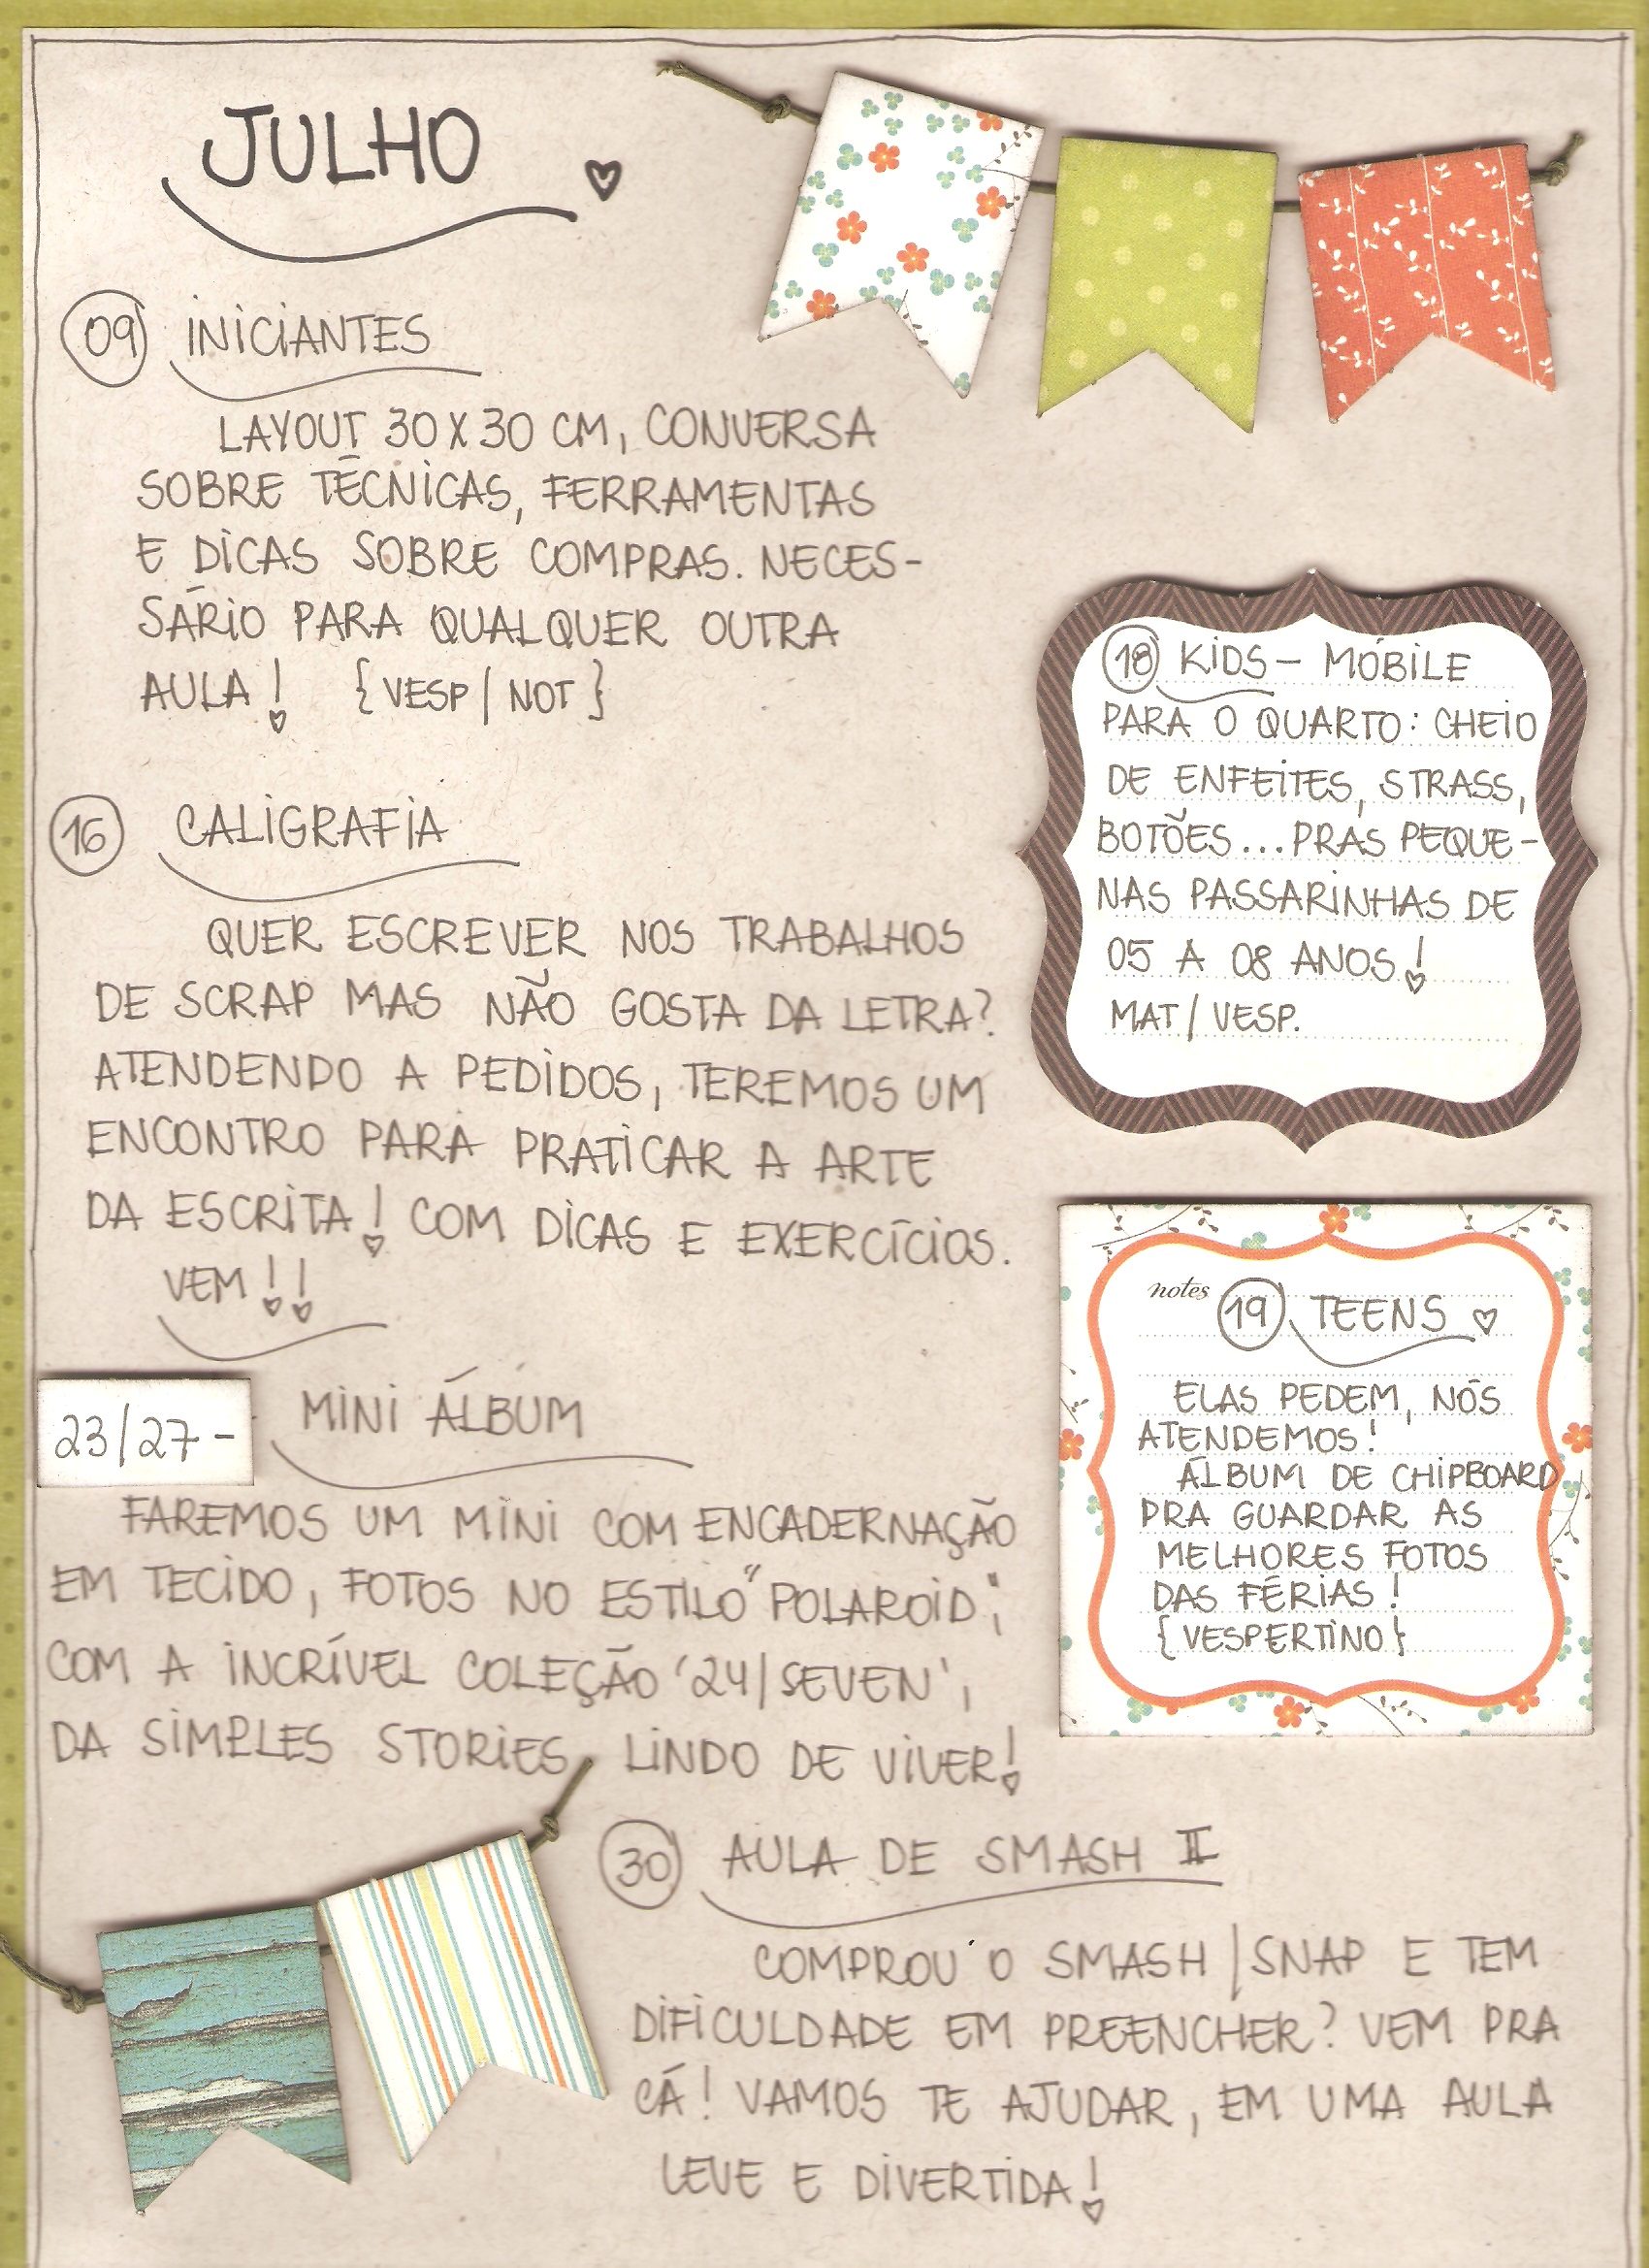 JULHO
09 INICIANTES
LAYOUT 30 X 30 CM, CONVERSA
SOBRE TÉCNICAS, FERRAMENTAS
E DICAS SOBRE COMPRAS. NECES-
SÁRIO PARA QUALQUER OUTRA
AULA! {VESP/NOT}
16 CALIGRAFIA
QUER ESCREVER NOS TRABALHOS
DE SCRAP MAS NÃO GOSTA DA LETRA?
ATENDENDO A PEDIDOS, TEREMOS UM
ENCONTRO PARA PRATICAR A ARTE
DA ESCRITA! COM DICAS E EXERCÍCIOS.
VEM!!
23/27-
MINI ÁLBUM
FAREMOS UM MINI COM ENCADERNAÇÃO
EM TECIDO, FOTOS NO ESTILO "POLAROID",
COM A INCRÍVEL COLEÇÃO '24/SEVEN',
DA SIMPLES STORIES. LINDO DE VIVER!
18 KIDS - MÓBILE
PARA O QUARTO: CHEIO
DE ENFEITES, STRASS,
BOTÕES...PRAS PEQUE-
NAS PASSARINHAS DE
05 A 08 ANOS!
MAT/VESP.
notes 19 TEENS
ELAS PEDEM, NÓS
ATENDEMOS!
ÁLBUM DE CHIPBOARD
PRA GUARDAR AS
MELHORES FOTOS
DAS FÉRIAS!
{VESPERTINO}
30 AULA DE SMASH II
COMPROU O SMASH/SNAP E TEM
DIFICULDADE EM PREENCHER? VEM PRA
CÁ! VAMOS TE AJUDAR, EM UMA AULA
LEVE E DIVERTIDA!